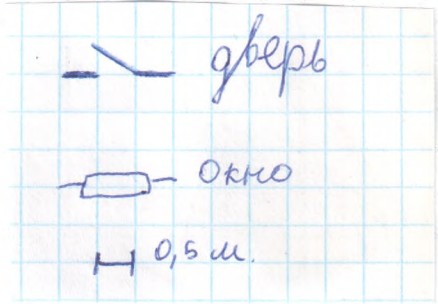 дверь
окно
0,5 м.